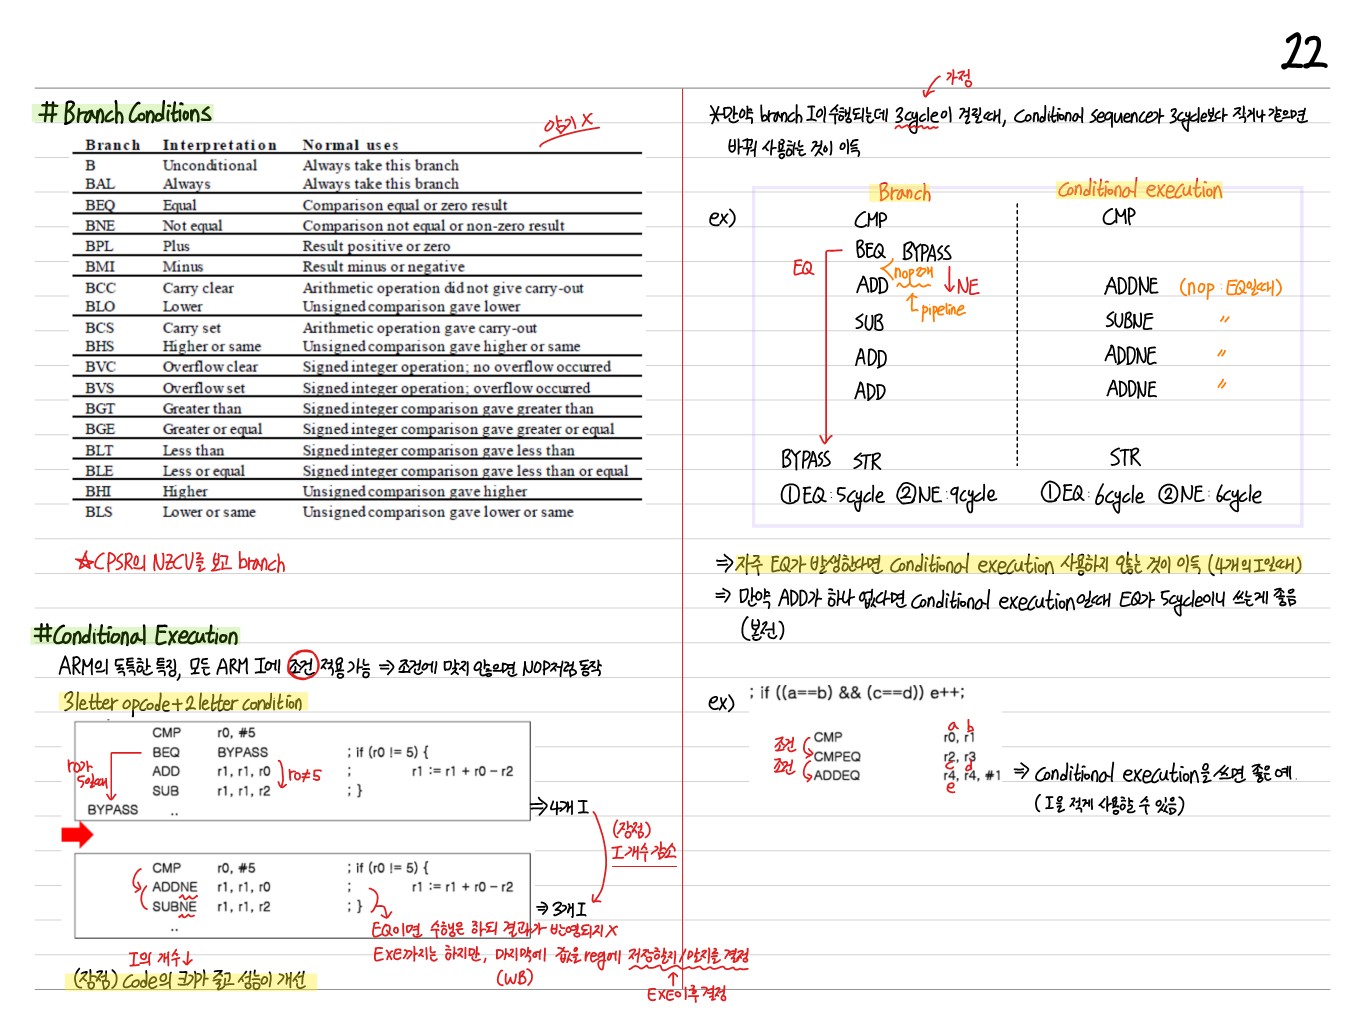 22
# Branch Conditions
암기 X
Branch Interpretation Normal uses
B Unconditional Always take this branch
BAL Always Always take this branch
BEQ Equal Comparison equal or zero result
BNE Not equal Comparison not equal or non-zero result
BPL Plus Result positive or zero
BMI Minus Result minus or negative
BCC Carry clear Arithmetic operation did not give carry-out
BLO Lower Unsigned comparison gave lower
BCS Carry set Arithmetic operation gave carry-out
BHS Higher or same Unsigned comparison gave higher or same
BVC Overflow clear Signed integer operation; no overflow occurred
BVS Overflow set Signed integer operation; overflow occurred
BGT Greater than Signed integer comparison gave greater than
BGE Greater or equal Signed integer comparison gave greater or equal
BLT Less than Signed integer comparison gave less than
BLE Less or equal Signed integer comparison gave less than or equal
BHI Higher Unsigned comparison gave higher
BLS Lower or same Unsigned comparison gave lower or same
☆CPSR의 NZCV를 보고 branch
#Conditional Execution
ARM의 독특한 특징, 모든 ARM I에 조건 적용가능 ⇒ 조건에 맞지 않으면 NOP처럼 동작
3letter opcode + 2letter condition
CMP r0, #5
BEQ BYPASS ; if (r0 != 5) {
ADD r1, r1, r0 ; r1 := r1 + r0 − r2
SUB r1, r1, r2 ; }
BYPASS ..
r0가
5일때
r0≠5
⇒ 4개 I
(장점)
I 개수 감소
CMP r0, #5 ; if (r0 != 5) {
ADDNE r1, r1, r0 ; r1 := r1 + r0 − r2
SUBNE r1, r1, r2 ; }
..
⇒ 3개 I
EQ이면 수행은 하되 결과가 반영되지 X
EXE까지는 하지만, 마지막에 값을 reg에 저장할지/말지를 결정
(WB)
EXE이후 결정
I의 개수↓
(장점) Code의 크기가 줄고 성능이 개선
가정
*만약 branch I이 수행되는데 3cycle이 걸릴때, Conditional sequence가 3cycle보다 적거나 같으면
바꿔 사용하는 것이 이득
ex)
Branch
CMP
BEQ BYPASS
nop 2개
ADD
pipeline
SUB
ADD
ADD
BYPASS STR
EQ
NE
① EQ : 5cycle ② NE : 9cycle
Conditional execution
CMP
ADDNE (nop : EQ일때)
SUBNE 〃
ADDNE 〃
ADDNE 〃
STR
① EQ : 6cycle ② NE : 6cycle
⇒ 자주 EQ가 발생한다면 Conditional execution 사용하지 않는 것이 이득 (4개의 I일때)
⇒ 만약 ADD가 하나 없다면 Conditional execution일때 EQ가 5cycle이니 쓰는게 좋음
(본전)
ex)
; if ((a==b) && (c==d)) e++;
a b
CMP r0, r1
조건
CMPEQ r2, r3
조건
c d
ADDEQ r4, r4, #1
e
⇒ Conditional execution을 쓰면 좋은 예.
(I을 적게 사용할 수 있음)